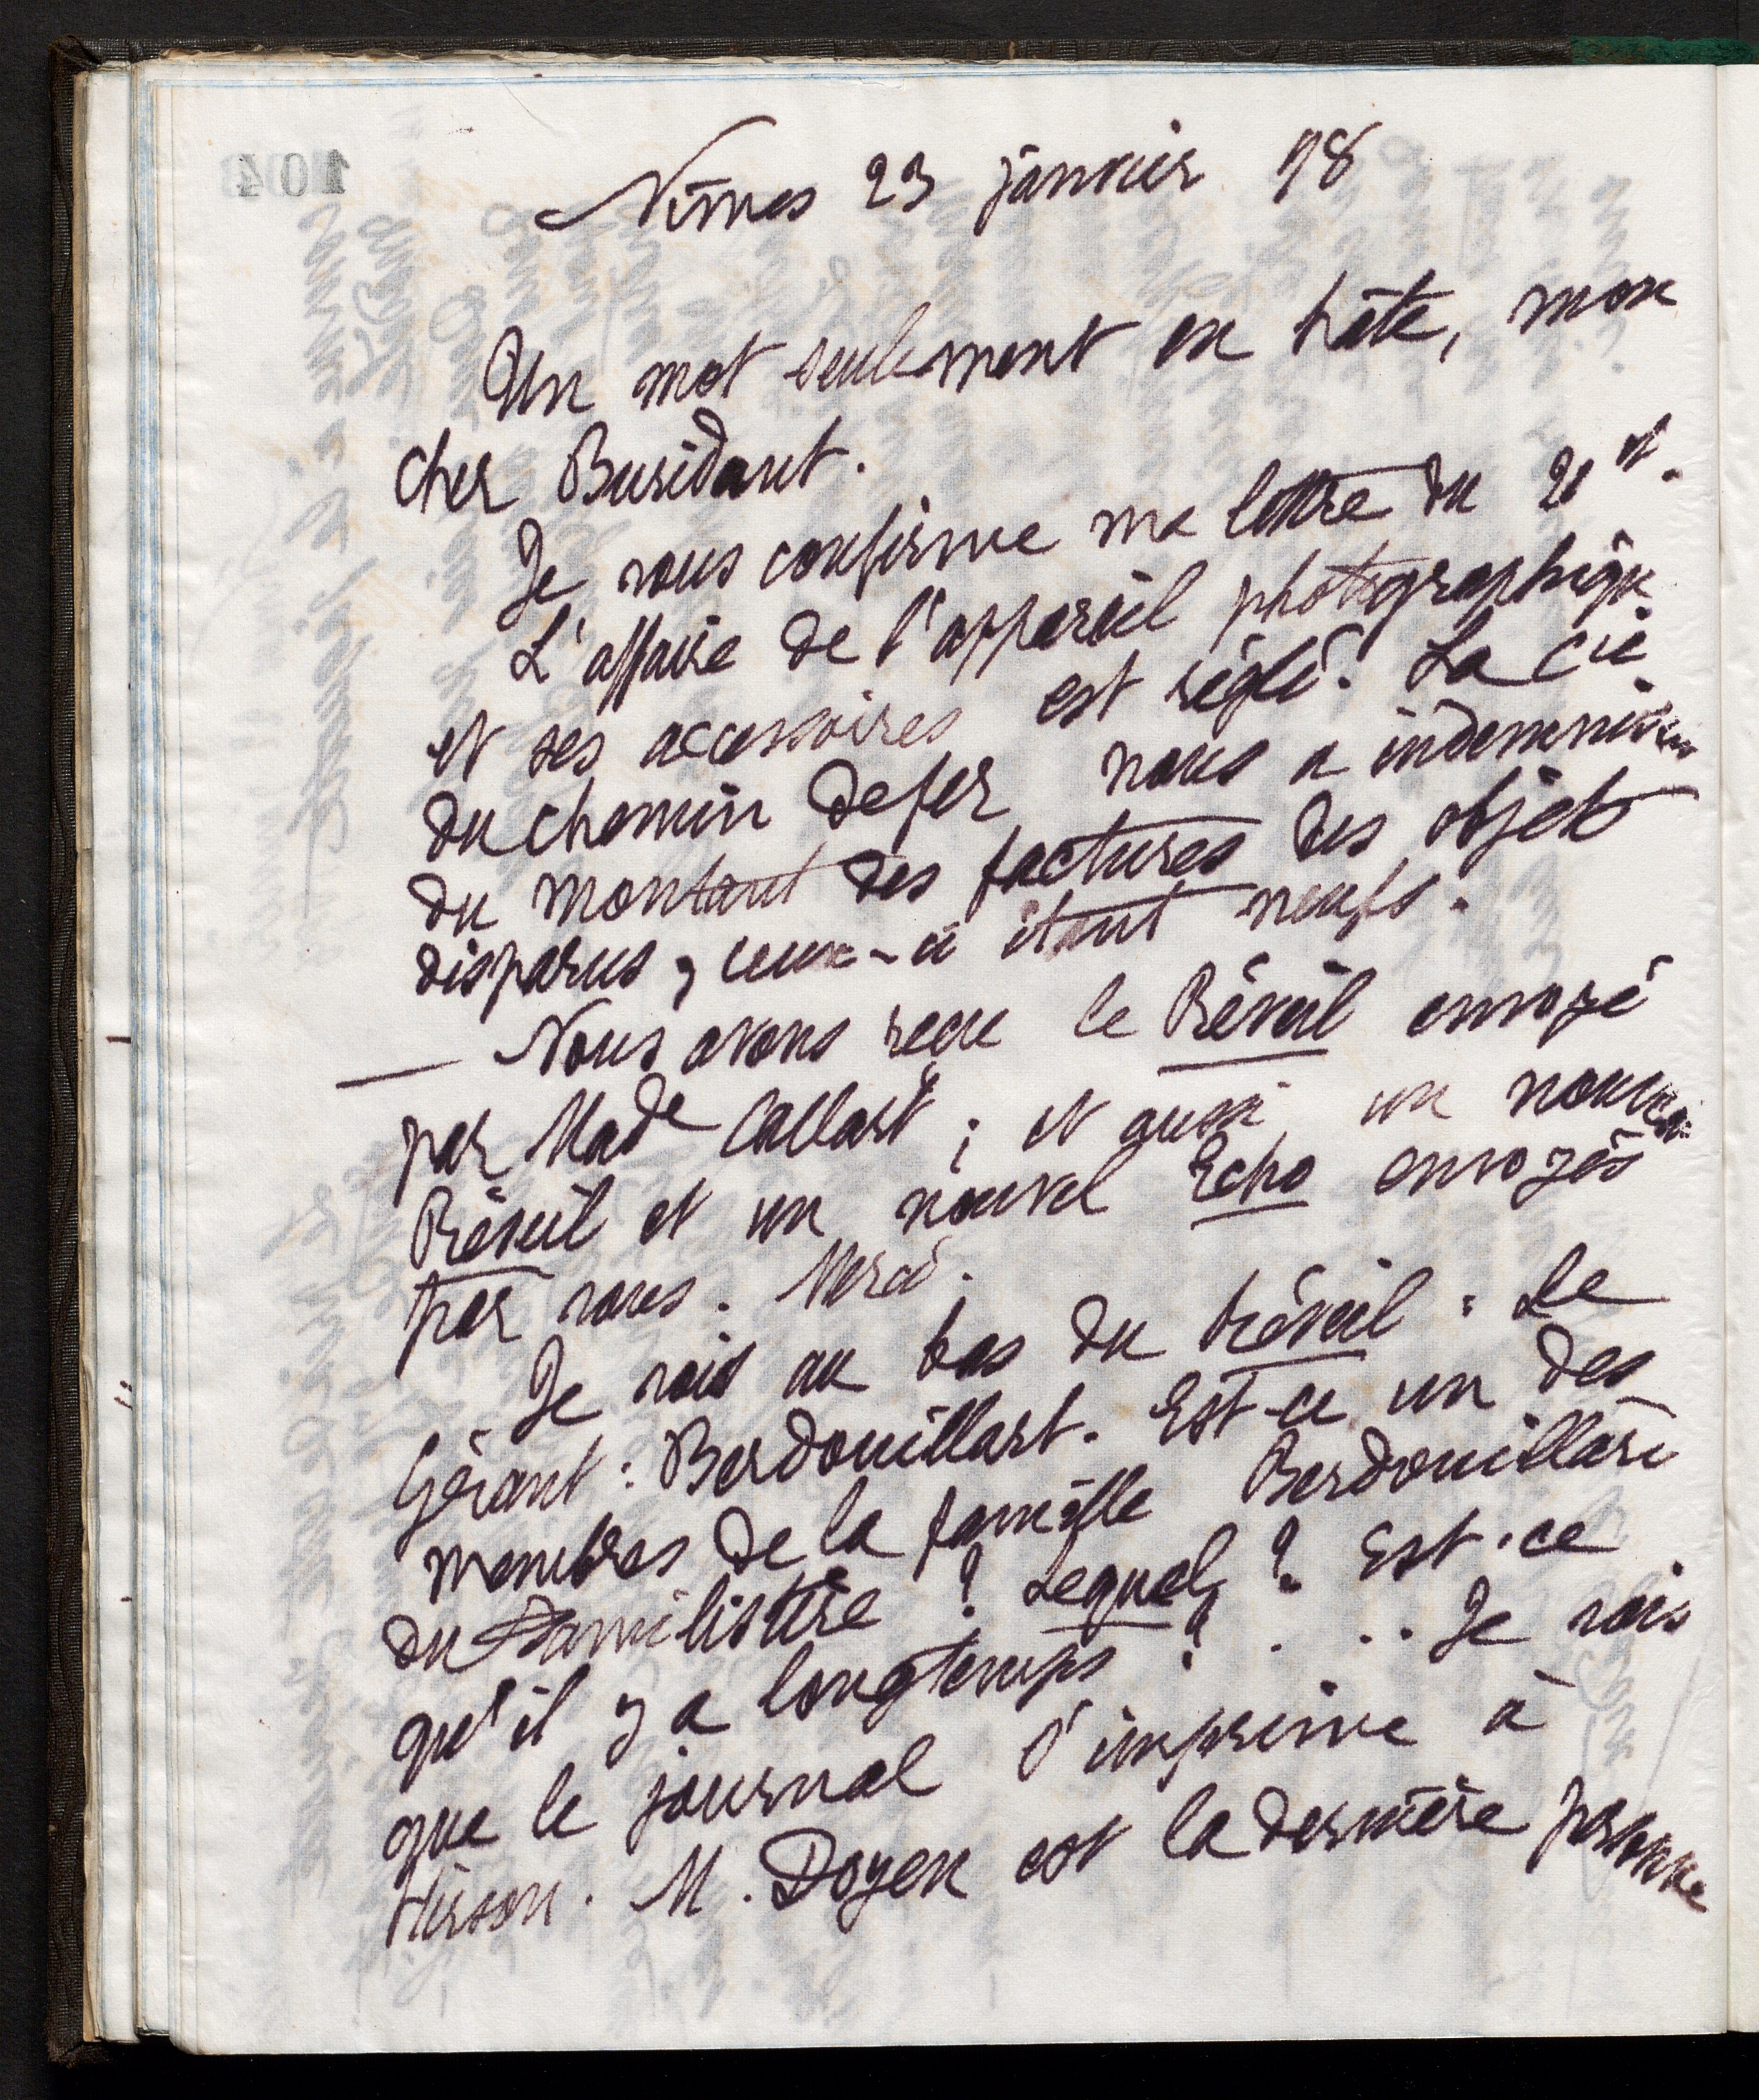 104
Nîmes 23 janvier 98
Un mot seulement en hâte, mon
cher Buridant.
Je vous confirme ma lettre du 20 ct.
L'affaire de l'appareil photographique
et ses accessoires est réglé. La Cie
du chemin de fer nous a indemnisés
du montant des factures des objets
disparus, ceux-ci étant neufs.
— Nous avons reçu le Réveil envoyé
par Made Callart ; et aussi un nouveau
Réveil et un nouvel Echo envoyés
par vous. Merci.
Je vois au bas du Réveil : Le
Gérant : Berdouillart. Est-ce un des
membres de la famille Berdouillart
du Familistère ? Lequel ? Est-ce
qu'il y a longtemps ? . . . Je vois
que le journal s'imprime à
Hirson. M. Doyen est la dernière personne